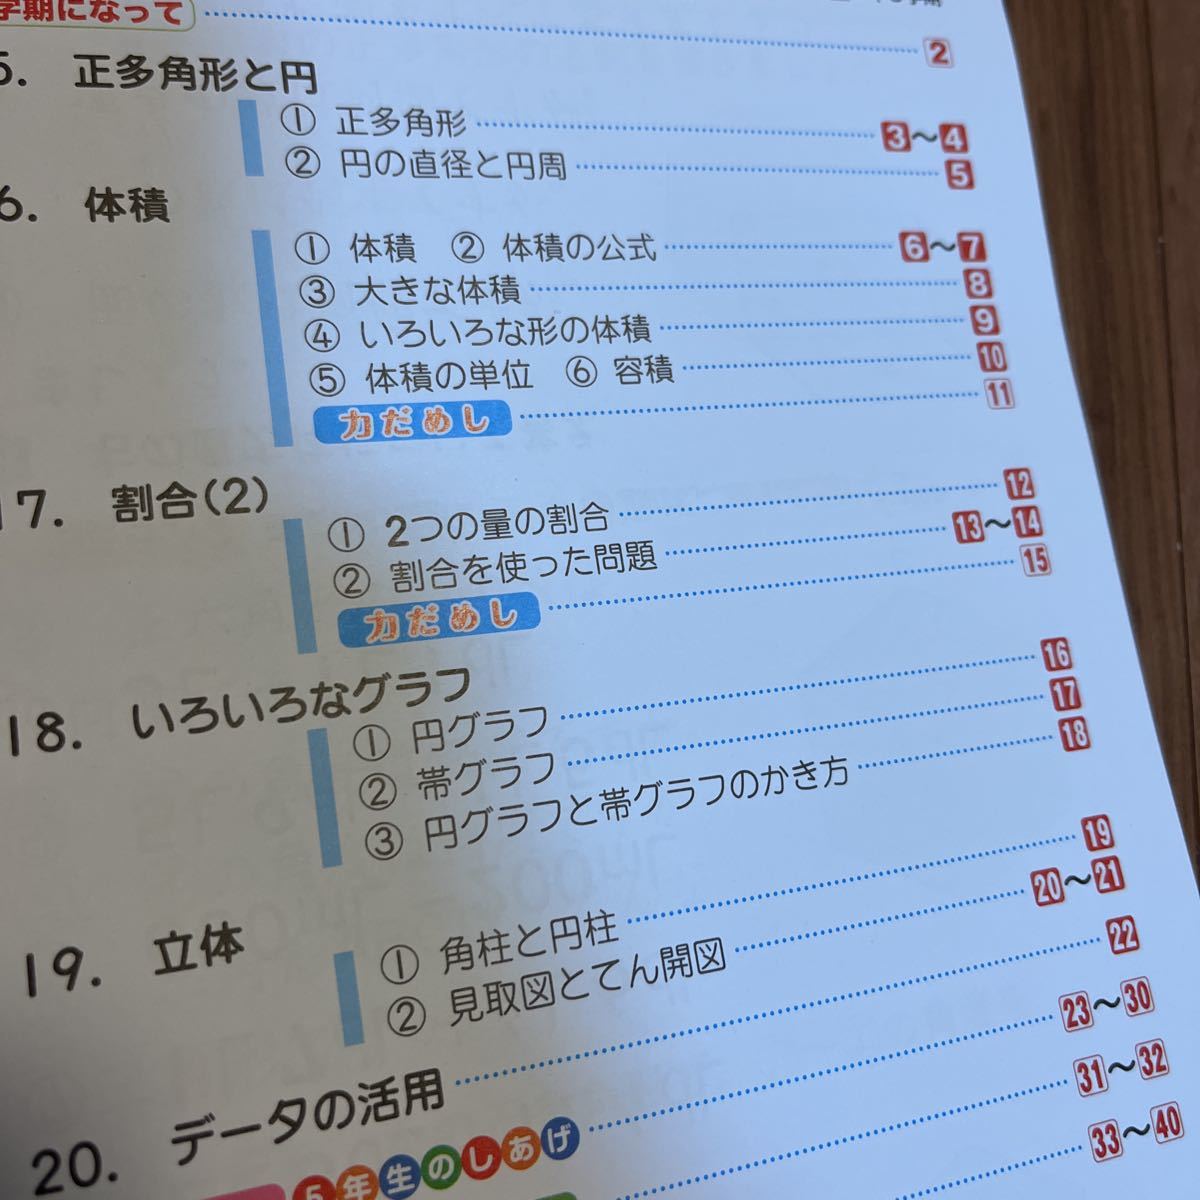 学期になって 2
5. 正多角形と円
① 正多角形 3〜4
② 円の直径と円周 5
6. 体積
① 体積 ② 体積の公式 6〜7
③ 大きな体積 8
④ いろいろな形の体積 9
⑤ 体積の単位 ⑥ 容積 10
力だめし 11
17. 割合(2)
① 2つの量の割合 12
② 割合を使った問題 13〜14
力だめし 15
18. いろいろなグラフ
① 円グラフ 16
② 帯グラフ 17
③ 円グラフと帯グラフのかき方 18
19. 立体
① 角柱と円柱 19
② 見取図とてん開図 20〜21
20. データの活用 22
5年生のしあげ 23〜30
31〜32
33〜40